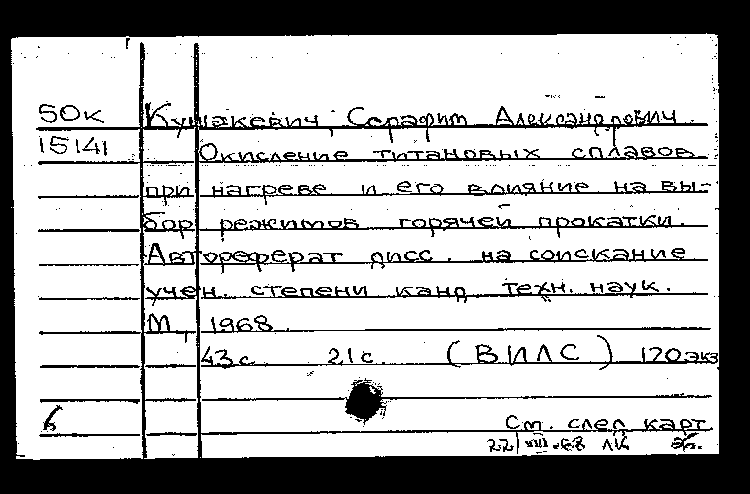 50к Кушакевич, Серафим Александрович.
15141 Окисление титановых сплавов
при нагреве и его влияние на вы-
бор режимов горячей прокатки.
Автореферат дисс. на соискание
учен. степени канд. техн. наук.
М., 1968.
43 с. 21 с. (ВИЛС) 170 экз
См. след карт
22/VIII.68 ЛК